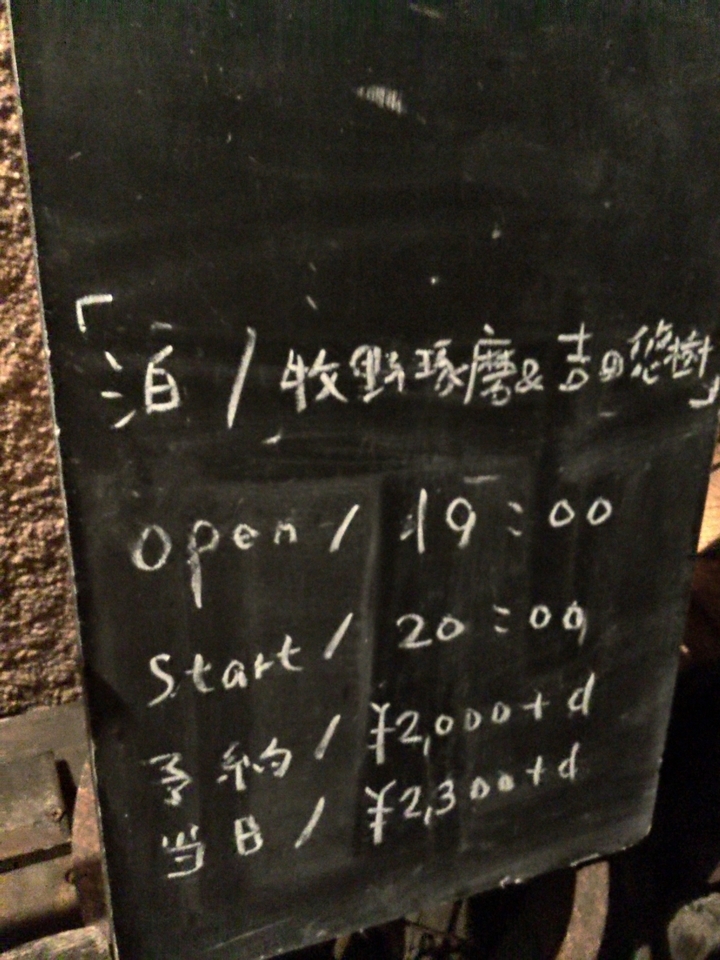 「泊 / 牧野琢磨&吉田悠樹」
open / 19:00
Start / 20:00
予約 / ¥2,000+d
当日 / ¥2,300+d